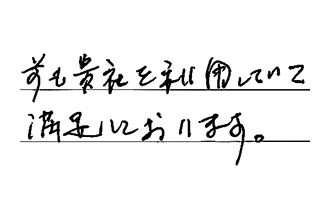 前も貴社を利用していて
満足しております。